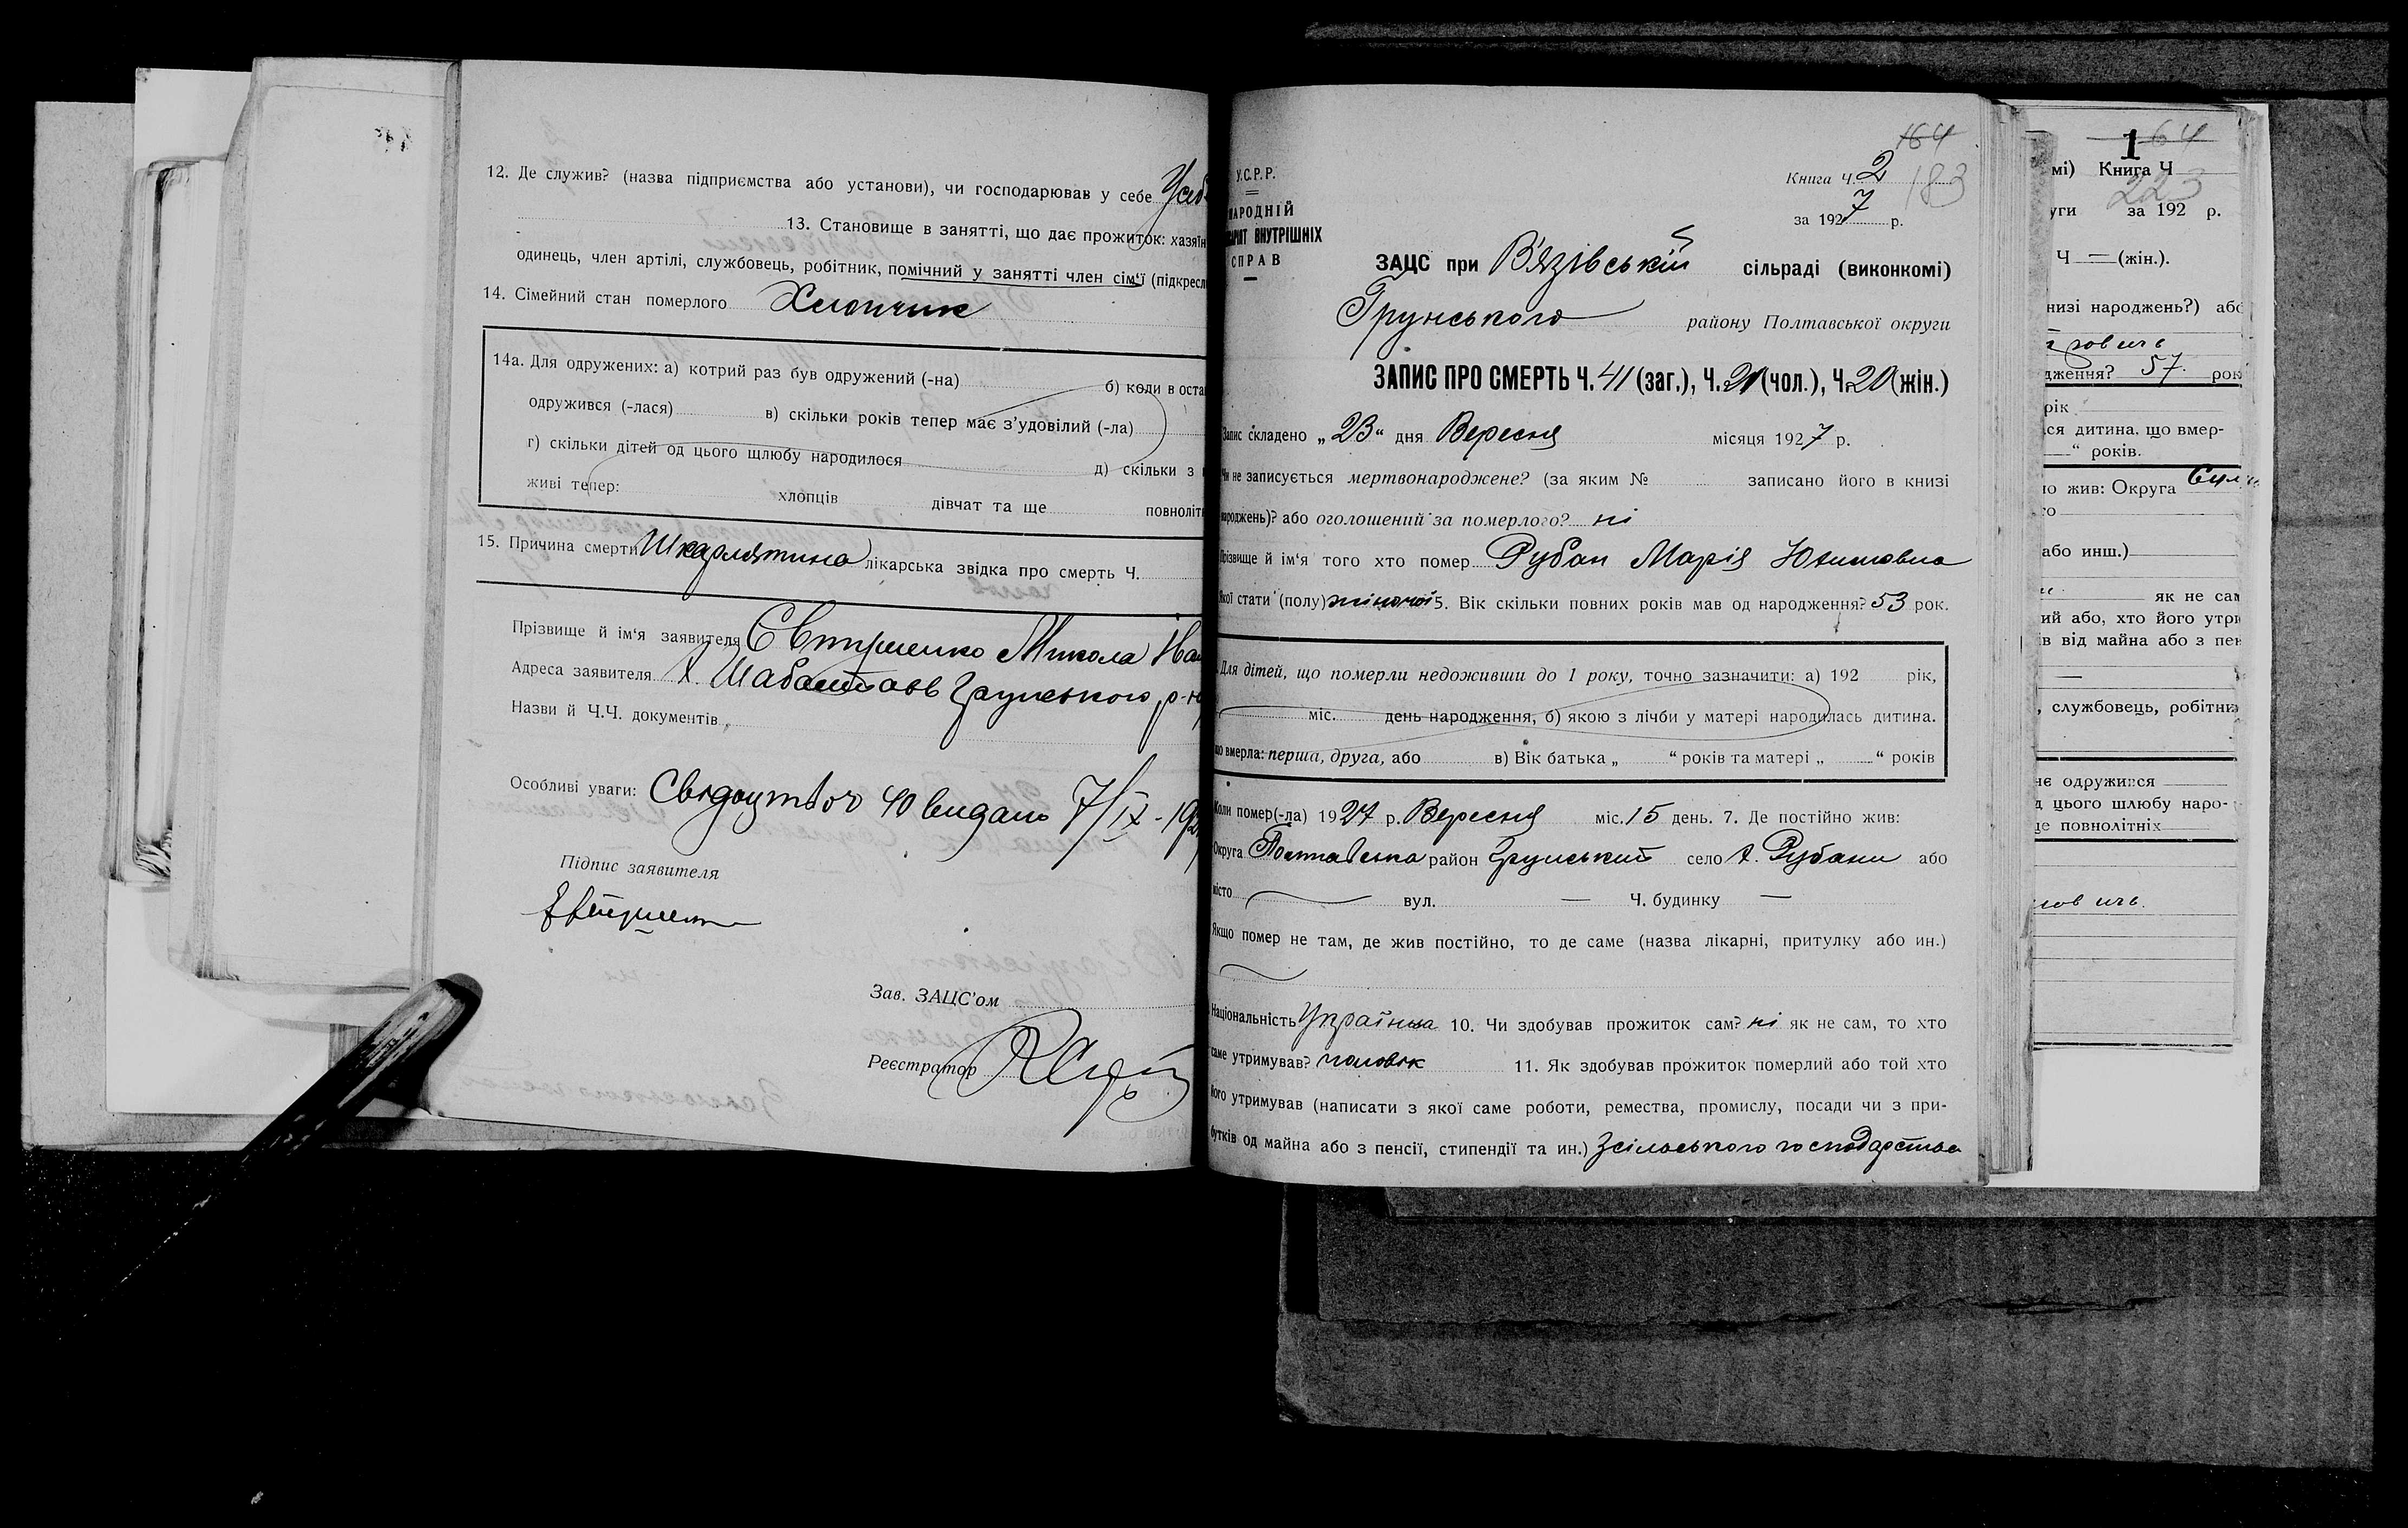 12. Де служив? (назва підприємства або установи), чи господарював у себе Усеб
13. Становище в занятті, що дає прожиток: хазяїн
одинець, член артілі, службовець, робітник, помічний у занятті член сім'ї (підкресл
14. Сімейний стан померлого Хлопчик
14а. Для одружених: а) котрий раз був одружений (-на) б) коли в оста
одружився (-лася) в) скільки років тепер має з'удовілий (-ла)
г) скільки дітей од цього щлюбу народилося д) скільки з
живі тепер: хлопців дівчат та ще повноліт
15. Причина смерти Шкарлятина лікарська звідка про смерть Ч.
Прізвище й ім'я заявителя Євтушенко Микола
Адреса заявителя х. Грунського р-н
Назви й Ч.Ч. документів
Особливі уваги: Свідоцтво 40 видано 7/IX-192
Підпис заявителя
Зав. ЗАЦС'ом
Реєстратор
164
Книга Ч. 2 183
за 1927 р.
У.С.Р.Р.
НАРОДНІЙ
ВНУТРІШНІХ
СПРАВ
ЗАЦС при В'язівській сільраді (виконкомі)
Грунського району Полтавської округи
ЗАПИС ПРО СМЕРТЬ Ч. 41 (заг.), Ч. 21 (чол.), Ч. 20 (жін.)
Запис складено „23“ дня Вересня місяця 1927 р.
Чи не записується мертвонароджене? (за яким № записано його в книзі
народжень)? або оголошений за померлого? ні
Прізвище й ім'я того хто помер Рубан Марія Юхимовна
Якої стати (полу) жіночої 5. Вік скільки повних років мав од народження? 53 рок.
Для дітей, що померли недоживши до 1 року, точно зазначити: а) 192 рік,
міс. день народження, б) якою з лічби у матері народилась дитина.
що вмерла: перша, друга, або в) Вік батька „ “ років та матері „ “ років
Коли помер(-ла) 1927 р. Вересня міс. 15 день. 7. Де постійно жив:
Округа Полтавська район Грунський село х. Рубани або
місто вул. — Ч. будинку —
Якщо помер не там, де жив постійно, то де саме (назва лікарні, притулку або ин.)
Національність Українка 10. Чи здобував прожиток сам? ні як не сам, то хто
саме утримував? чоловік 11. Як здобував прожиток померлий або той хто
його утримував (написати з якої саме роботи, ремества, промислу, посади чи з при-
бутків од майна або з пенсії, стипендії та ин.) З сільського господарства
1 64
мі) Книга Ч
223
уги за 192 р.
Ч — (жін.).
низі народжень?) або
дження? 57 рок
рік
ся дитина, що вмер-
“ років.
о жив: Округа
го
або инш.)
як не сам
ий або, хто його утри
ів від майна або з пен
—
, службовець, робітник
нє одружився
д цього шлюбу наро-
це повнолітніх